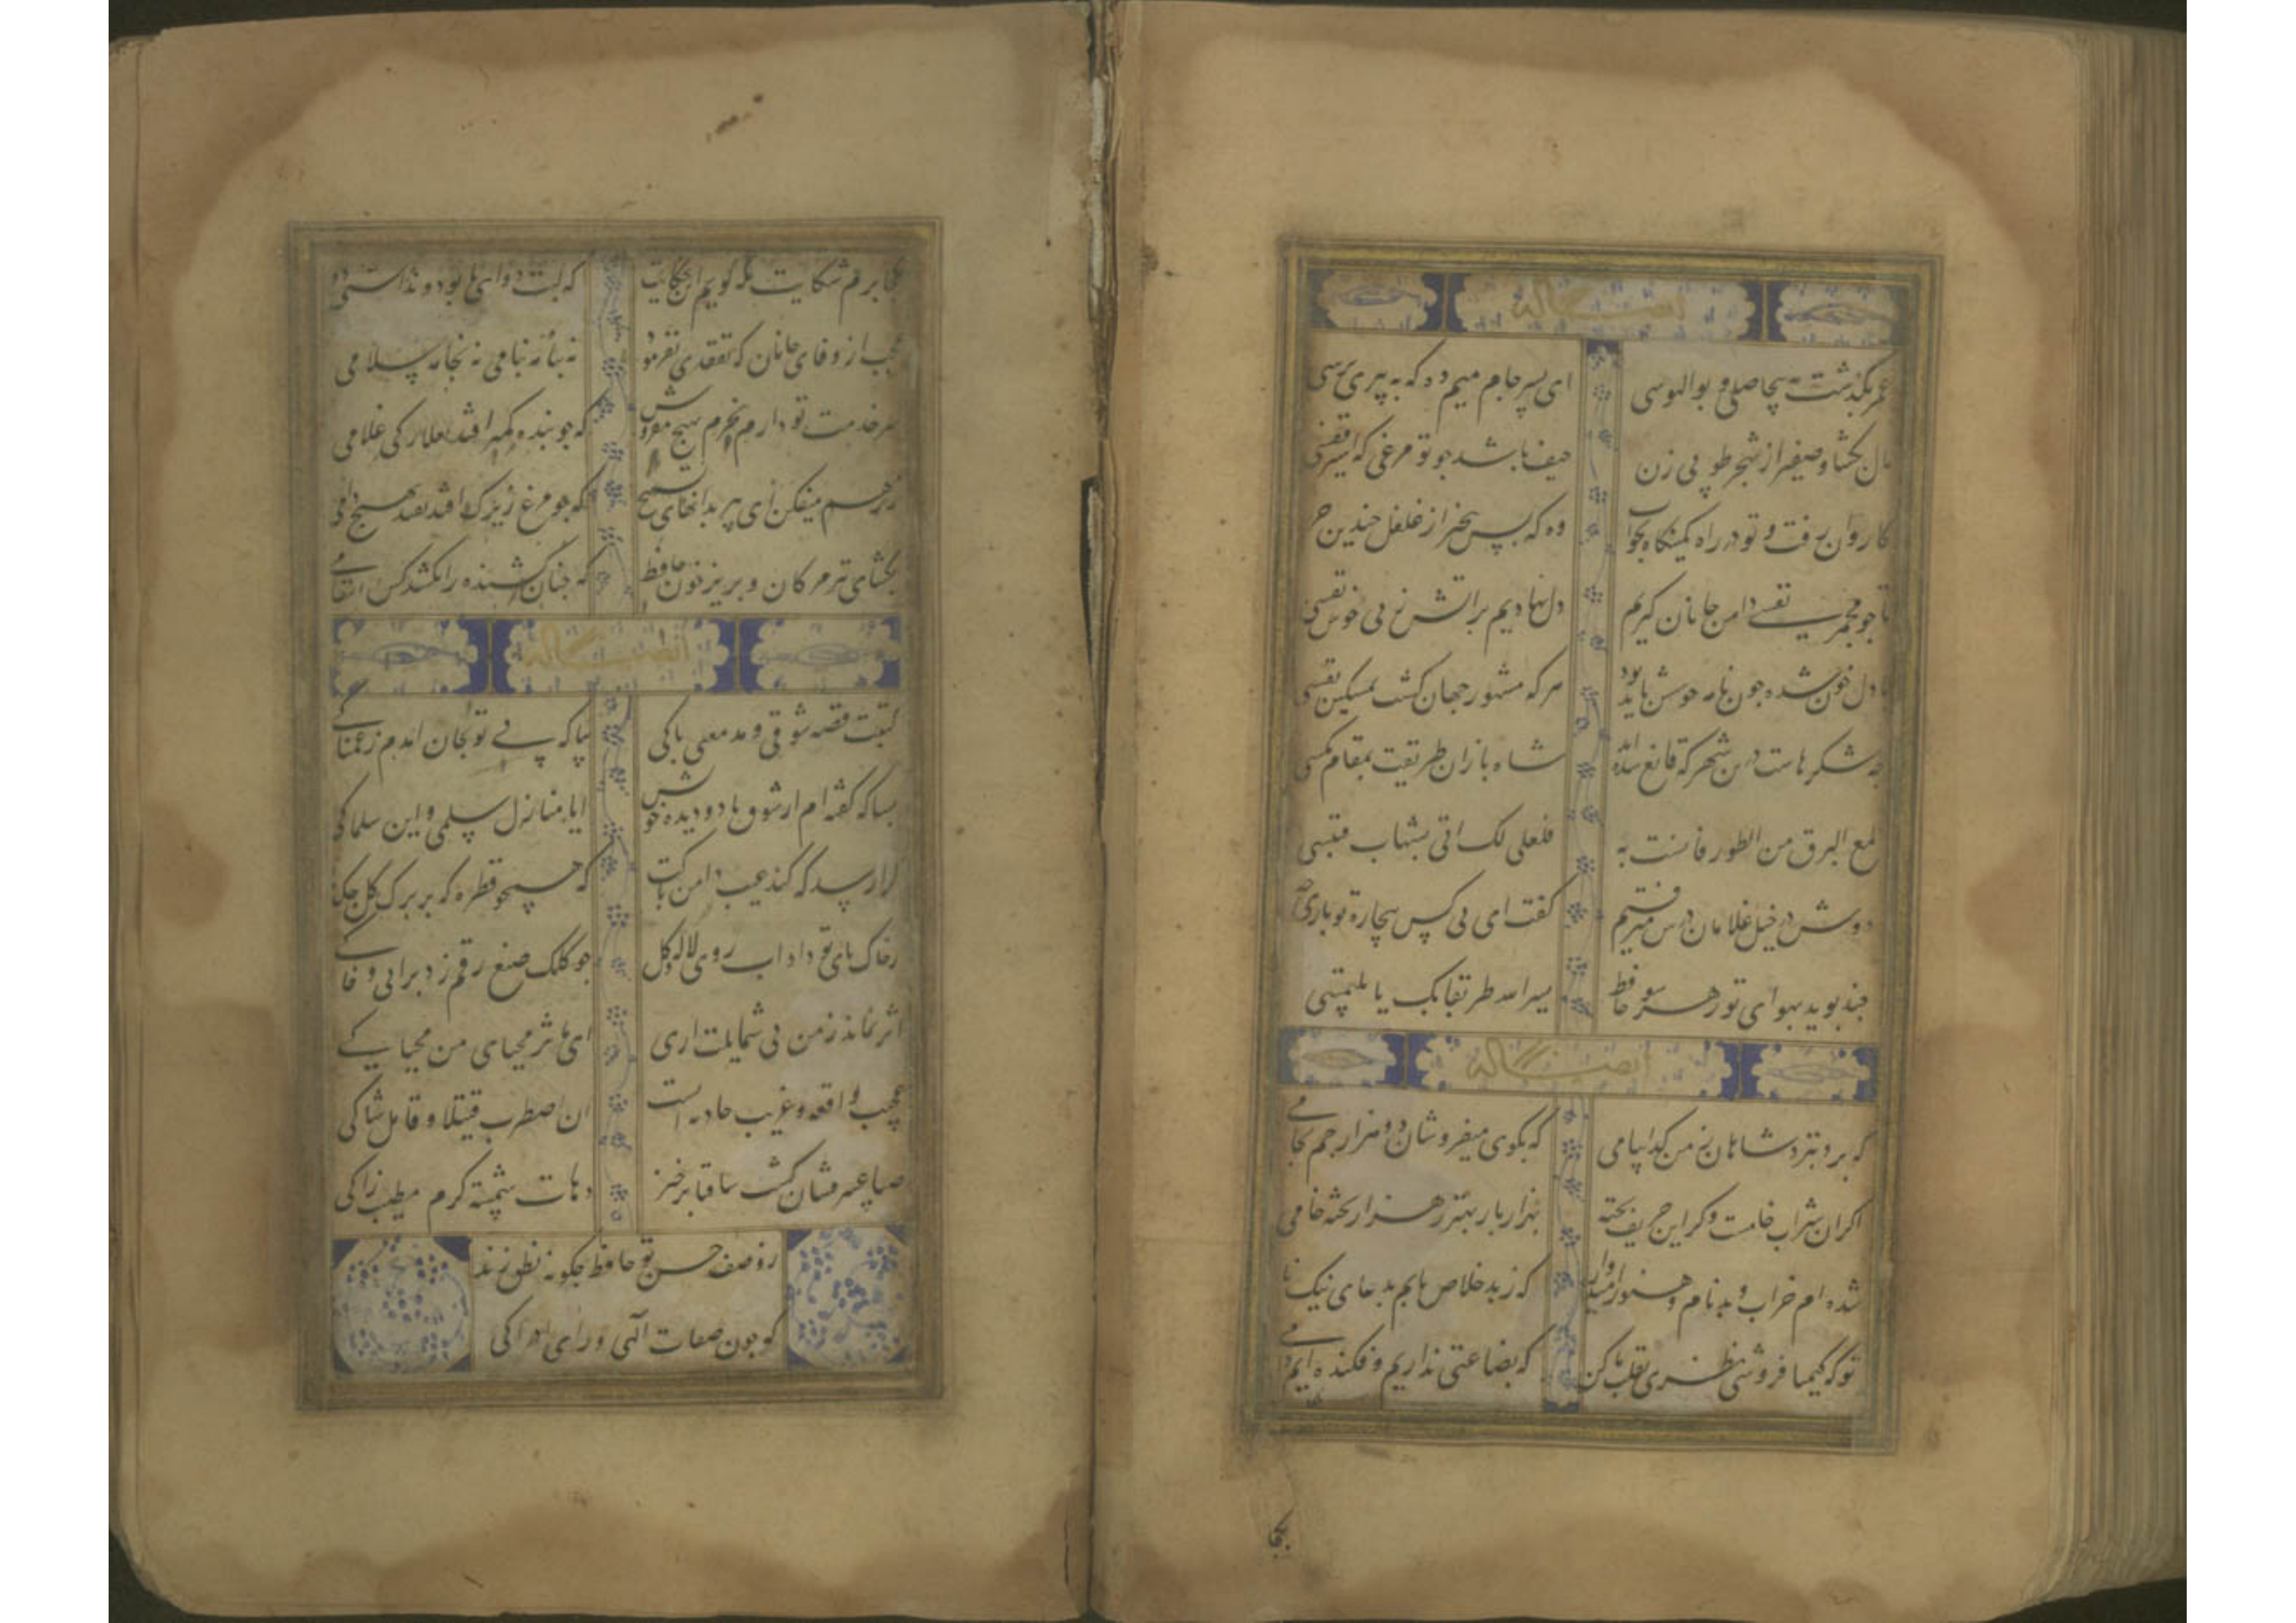 ایضاً له
عمر بگذشت به بیحاصلی و بوالهوسی
ای پسر جام میم ده که به پیری برسی
بال بکشا و صفیر از شجر طوبی زن
حیف باشد جو تو مرغی که اسیر قفسی
کاروان رفت و تو در راه کمینگاه بخواب
وه که بس بیخبر از غلغل جندین جرسی
تا جو مجمر نفسی دامن جانان کیرم
دل نهادیم بر آتش ز پی خوش نفسی
دل خون شده جون نافه خوش باید بود
هر که مشهور جهان کشت بمسکین نفسی
چه شکرهاست درین شهر که قانع شده‌اند
شاه بازان طریقت بمقام مکسی
لمع البرق من الطور فانست به
فلعلی لک اتی بشهاب قبسی
دوش در خیل غلامان درش میرفتم
کفت ای بی کس بیچاره تو باری
چند بوید بهوای تو ز هر سو حافظ
یسر الله طریقا بک یا ملتمسی
ایضاً له
که برد بنزد شاهان ز من کدا پیامی
که بکوی میفروشان دو هزار جم بجامی
اکر آن شراب خامست وکر این حریف پخته
بهزار بار بهتر ز هزار پخته خامی
شده‌ام خراب و بدنام و هنوز امیدوارم
که ز بد خلاص یابم بدعای نیک نا
تو که کیمیا فروشی نظری بقلب ما کن
که بضاعتی نداریم و فکنده‌ایم دا
بکجا
بکجا برم شکایت بکه کویم این حکایت
که لبت دوای ما بود و نداشتی دو
عجب از وفای جانان که تفقدی نفرمود
نه بنامه نه پیامی نه بخامه سلامی
سر خدمت تو دارم بخرم بهیچ مفروش
که جو بنده کمتر افتد بمبارکی غلامی
ز رهم میفکن ای پیر بدانهای تسبیح
که جو مرغ زیرک افتد نفتد بهیچ دامی
بکشای تیر مژکان و بریز خون حافظ
که جنان کشنده را نکشد کس انتقامی
ایضاً له
کتبت قصه شوقی و مدمعی باکی
بیا که بی تو بجان آمدم ز غمناکی
بسا که کفته‌ام از شوق با دو دیده خویش
ایا منازل سلمی و این سلماکی
کرا رسد که کند عیب دامن پاکت
که همچو قطره که بر برک کل جکد
ز خاک پای تو داد آب روی لاله و کل
جو کلک صنع رقم زد برابی و خاکی
اثر نماند ز من بی شمایلت آری
ارای مآثر محیای من محیاکی
عجیب واقعه و غریب حادثه است
ان اصطبرت قتیلا و قاتلی شاکی
صبا عبیر فشان کشت ساقیا برخیز
وهات شمسة کرم مطیب زاکی
ز وصف حسن تو حافظ جکونه نطق زند
که جون صفات الهی ورای ادراکی